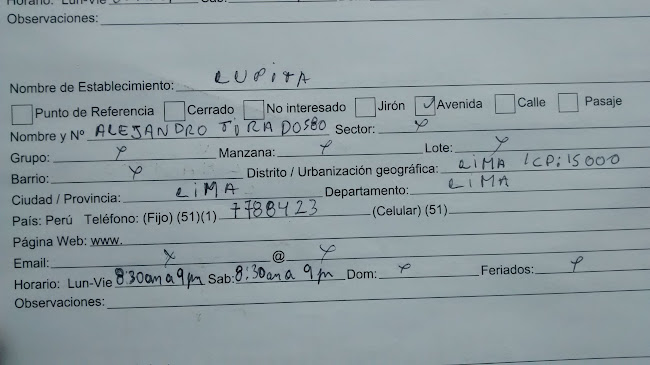 Horario: Lun-Vie Sab:
Observaciones:
Nombre de Establecimiento: LUPITA
Punto de Referencia Cerrado No interesado Jirón ✓ Avenida Calle Pasaje
Nombre y Nº ALEJANDRO TIRADO 580 Sector: x
Grupo: x Manzana: x Lote: x
Barrio: x Distrito / Urbanización geográfica: LIMA / CP: 15000
Ciudad / Provincia: LIMA Departamento: LIMA
País: Perú Teléfono: (Fijo) (51)(1) 7788423 (Celular) (51)
Página Web: www.
Email: x @ x
Horario: Lun-Vie 8:30am a 9pm Sab: 8:30am a 9pm Dom: x Feriados: x
Observaciones: